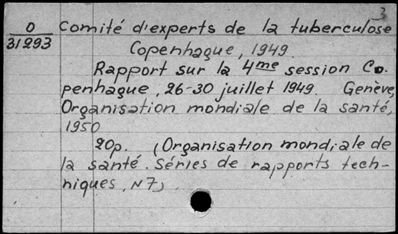 3
O Comité d'experts de la tuberculose
31293
Copenhague, 1949.
Rapport sur la 4me session Co
penhague, 26-30 juillet 1949. Genève,
Organisation mondiale de la santé,
1950
20p. (Organisation mondiale de
la santé. Séries de rapports tech-
niques, N7).